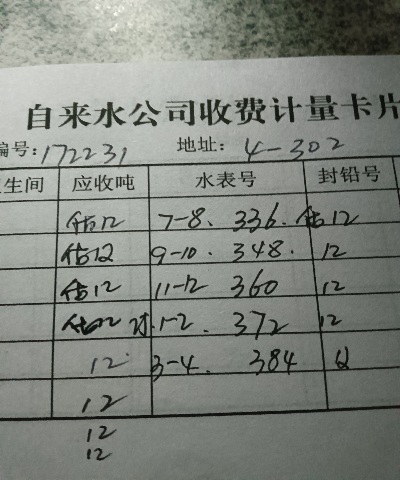 自来水公司收费计量卡片
编号:172231 地址: 4-302
生间 应收吨 水表号 封铅号
估12 7-8. 336. 估12
估12 9-10. 348. 12
估12 11-12 360 12
估12 1-2. 372 12
12 3-4. 384
12
12
12